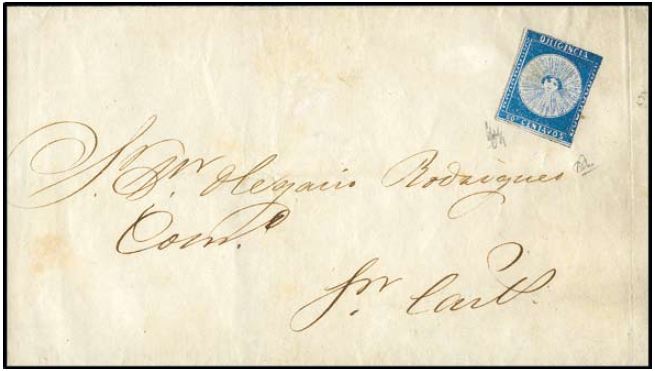 DILIGENCIA
60 CENTAVOS
Sr. Dn. Olegario Rodrigues
Comº
Sn Carl.